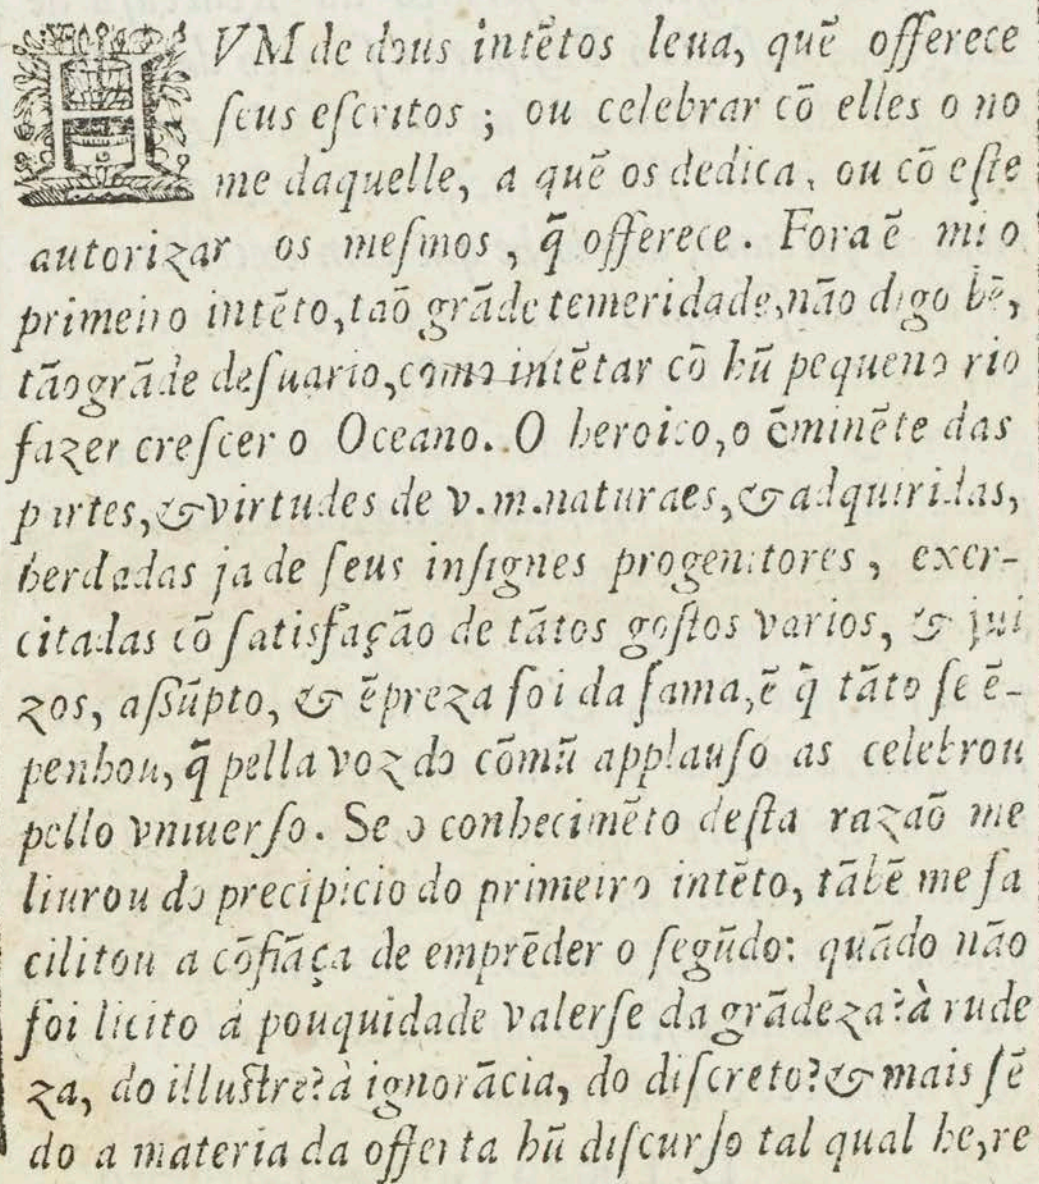 HVM de dous intẽtos leua, quẽ offerece
ſeus eſcritos ; ou celebrar cõ elles o no
me daquelle, a quẽ os dedica, ou cõ eſte
autorizar os meſmos, q̃ offerece. Fora ẽ mi o
primeiro intẽto, taõ grãde temeridade, não digo bẽ,
tão grãde deſuario, como intẽtar cõ hũ pequeno rio
fazer creſcer o Oceano. O heroico, o ẽminẽte das
partes, & virtudes de v.m. naturaes, & adquiridas,
herdadas ja de ſeus inſignes progenitores, exer-
citadas cõ ſatisfação de tãtos goſtos varios, & jui
zos, aſſũpto, & ẽpreza foi da fama, ẽ q̃ tãto ſe ẽ-
penhou, q̃ pella voz do cõmũ applauſo as celebrou
pello vniuerſo. Se o conhecimẽto deſta razaõ me
liurou do precipicio do primeiro intẽto, tãbẽ me fa
cilitou a cõfiãça de emprẽder o ſegũdo: quãdo não
foi licito á pouquidade valerſe da grãdeza? à rude
za, do illuſtre? à ignorãcia, do diſcreto? & mais ſẽ
do a materia da offerta hũ diſcurſo tal qual he, re